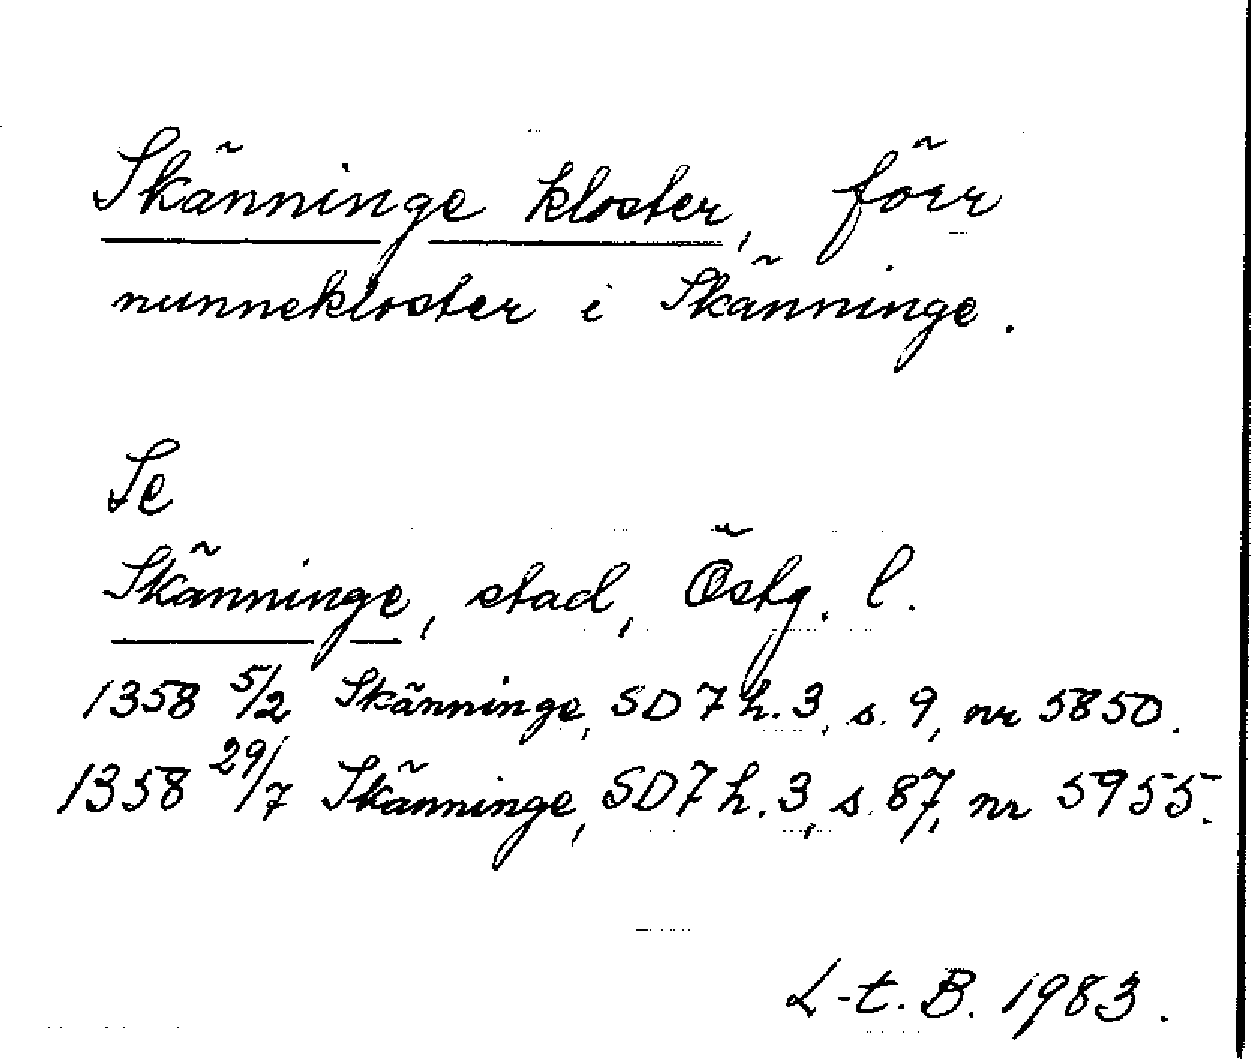 Skänninge kloster, förr
nunnekloster i Skänninge.
Se
Skänninge, stad, Östg. l.
1358 5/2 Skänninge, SD 7 h. 3, s. 9, nr 5850.
1358 29/7 Skänninge, SD 7 h. 3, s. 87, nr 5955.
L-t. B. 1983.